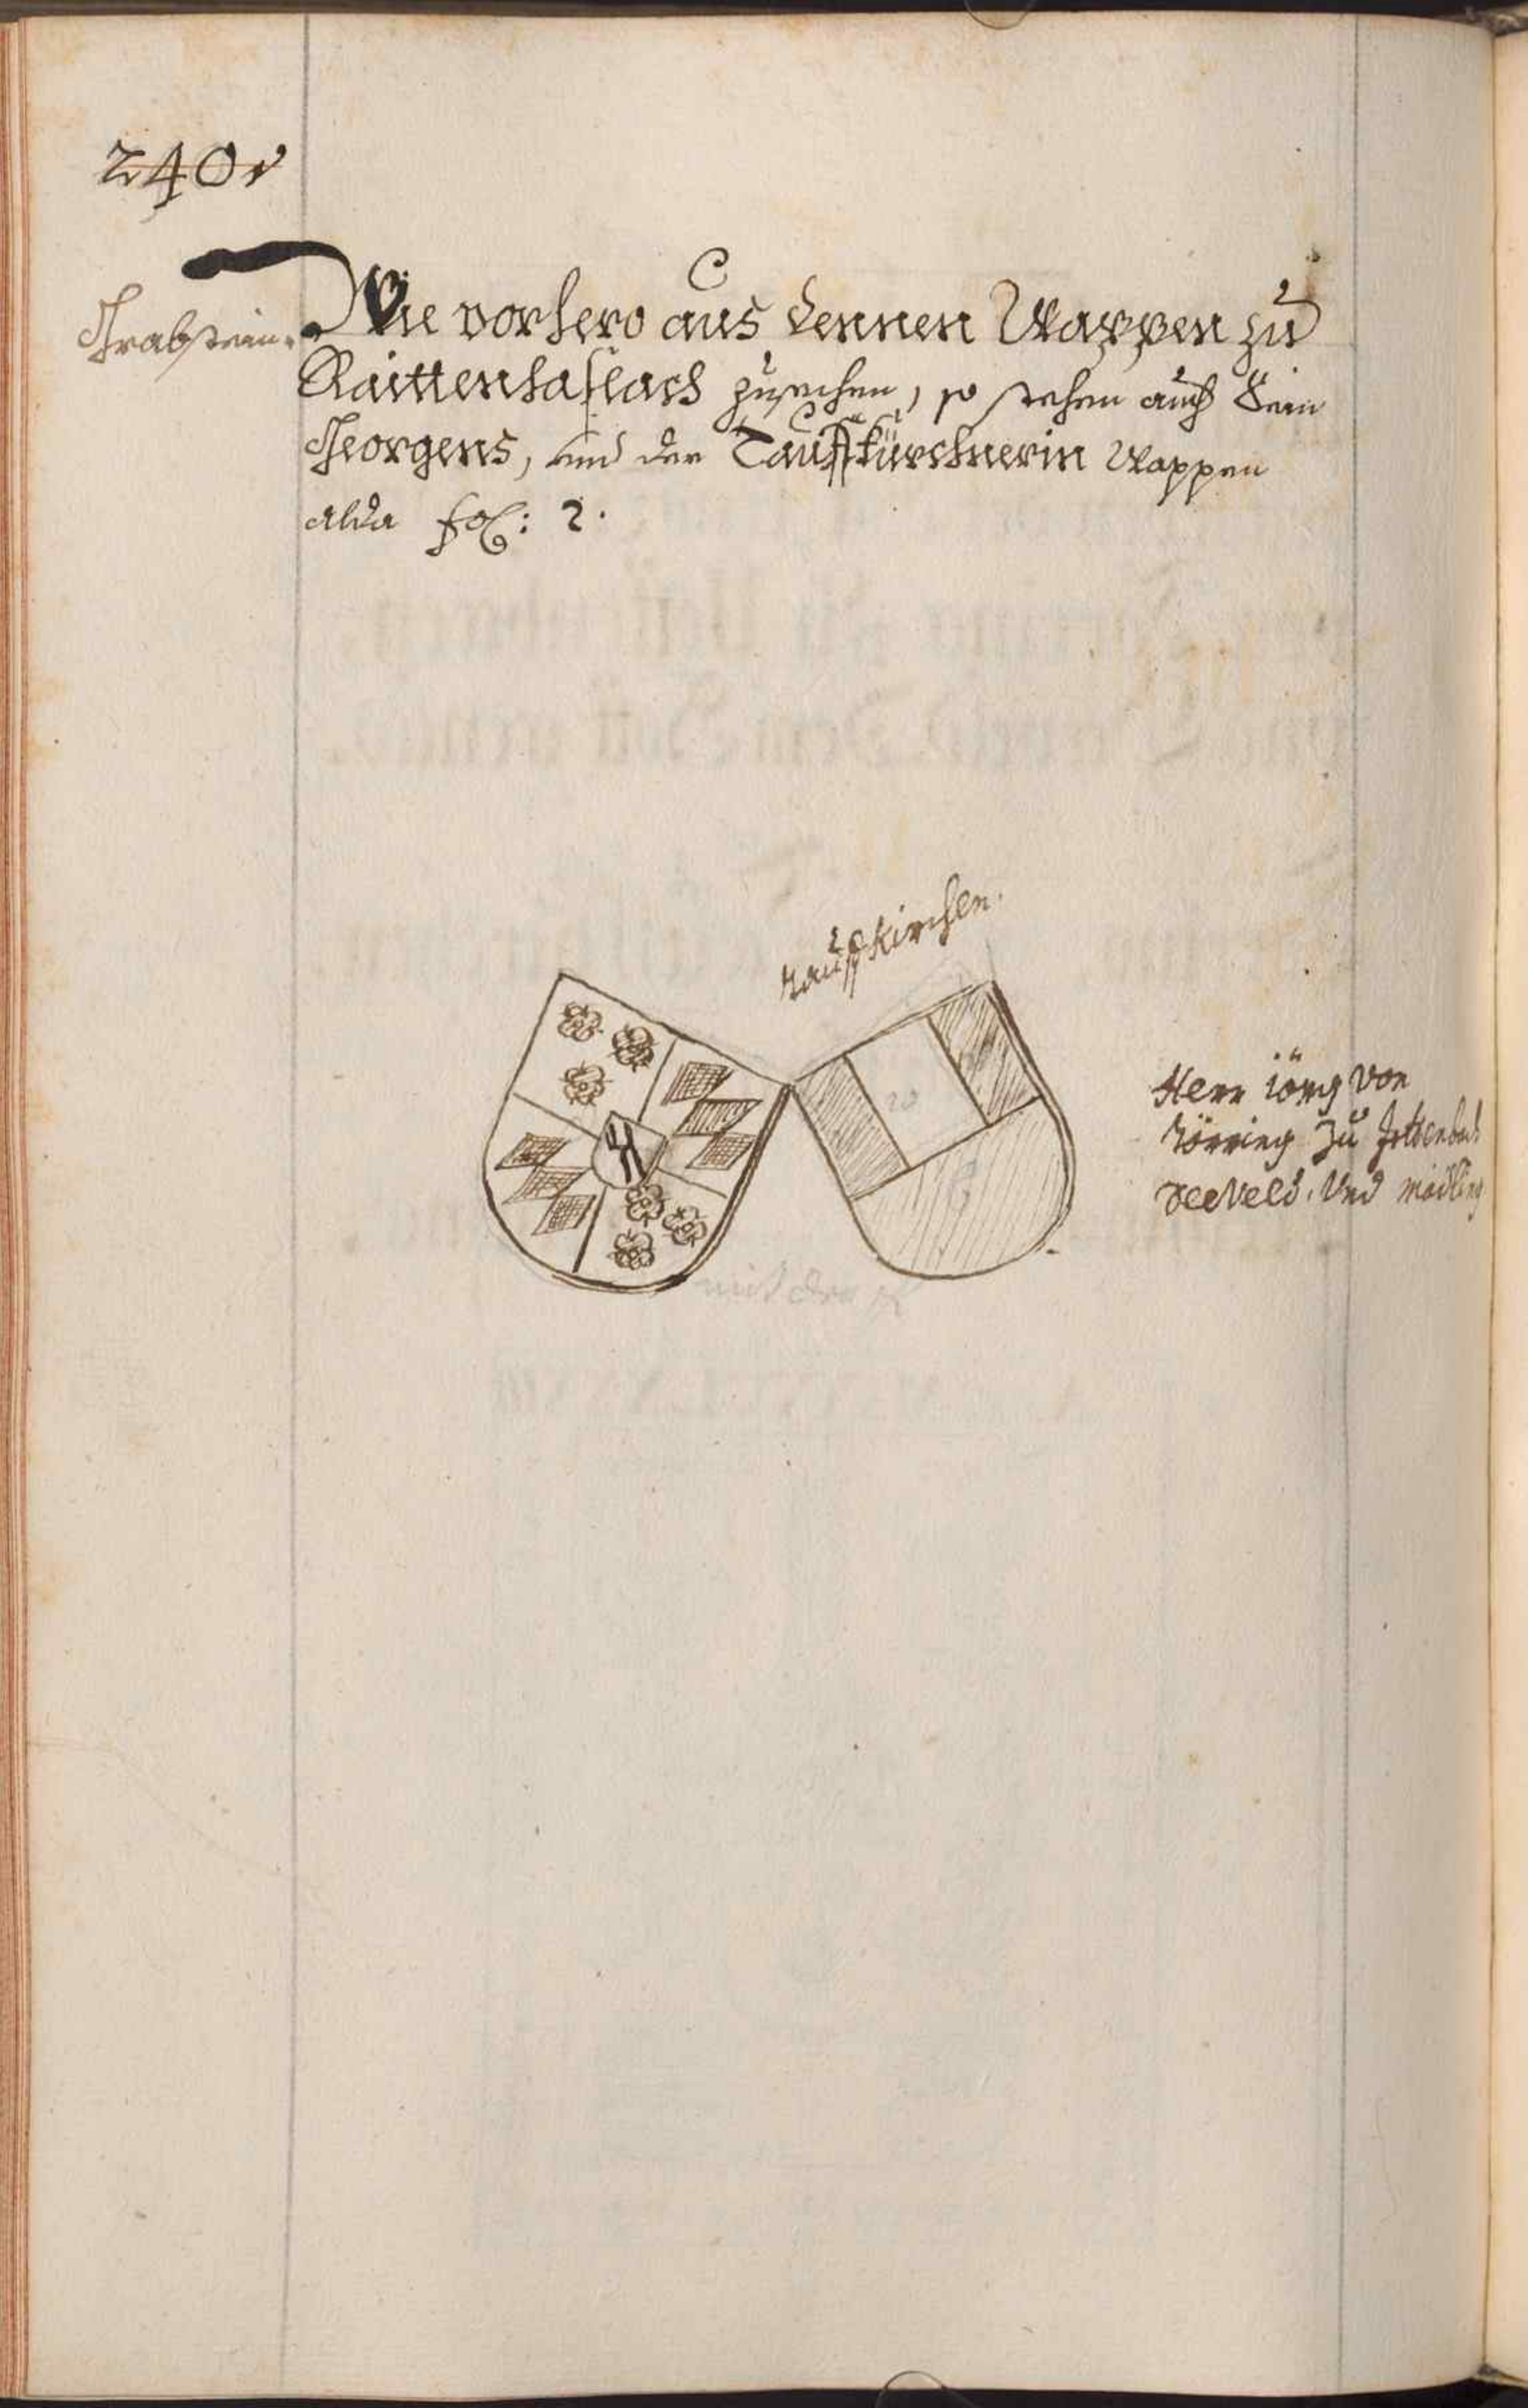 240v
Grabstein.
Wie vorhero aus dennen Wappen zu
Raittenhaslach zusehen, so stehen auch Sein
Georgens, und der Tauffkürchnerin Wappen
alda fol: 2.
tauffkirchen.
Herr iörg von
törring zu Jettenbach
Seeveld. Und mödling
mit der